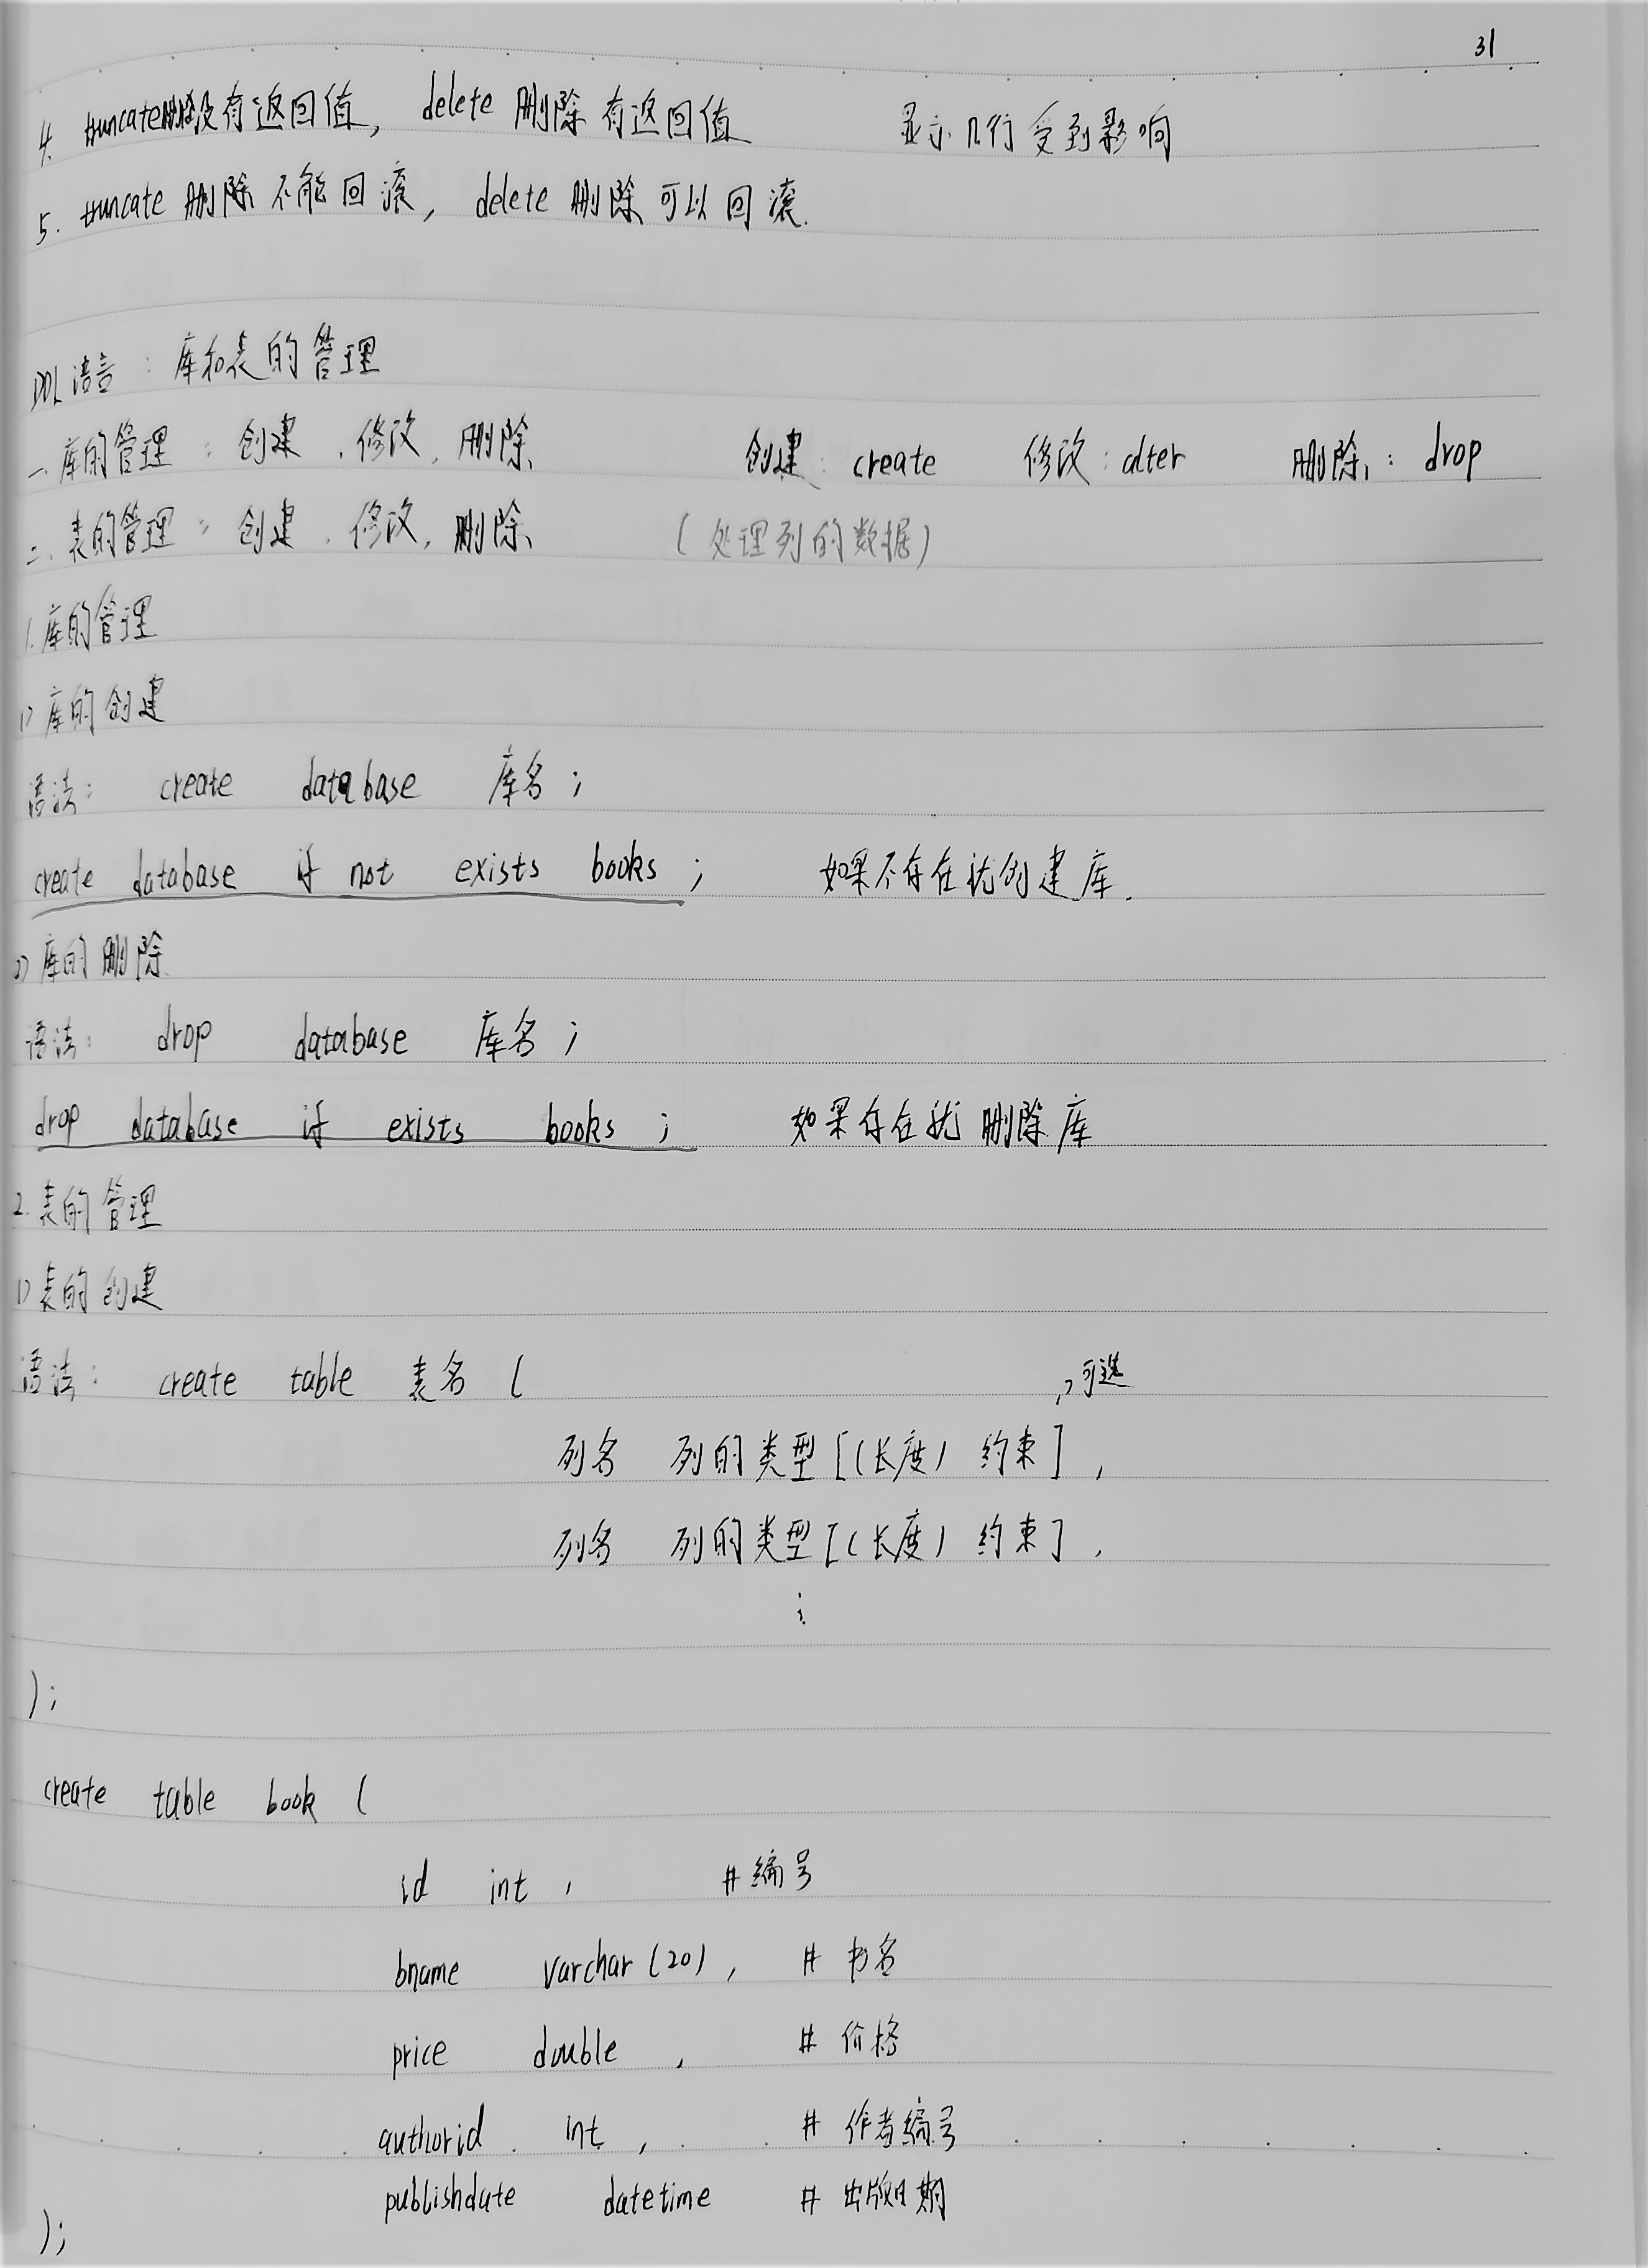 31
4. truncate删除没有返回值, delete 删除有返回值 显示几行受到影响
5. truncate 删除不能回滚, delete 删除可以回滚.
DDL语言: 库和表的管理
一.库的管理: 创建、修改、删除、 创建: create 修改: alter 删除: drop
二.表的管理: 创建、修改、删除、 (处理列的数据)
1.库的管理
1)库的创建
语法: create database 库名;
create database if not exists books; 如果不存在就创建库.
2)库的删除
语法: drop database 库名;
drop database if exists books; 如果存在就删除库
2.表的管理
1)表的创建
语法: create table 表名( 可选
列名 列的类型[(长度) 约束],
列名 列的类型[(长度) 约束],
⋮
);
create table book (
id int, #编号
bname varchar(20), #书名
price double, #价格
authorid int, #作者编号
publishdate datetime #出版日期
);